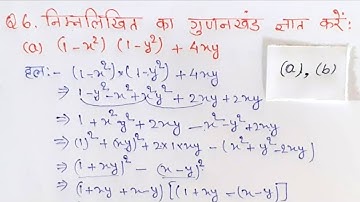 Q 6. निम्नलिखित का गुणनखंड ज्ञात करें:
(a) (1-x²) (1-y²) + 4xy
(a), (b)
हल:- (1-x²)×(1-y²) + 4xy
⇒ 1-y²-x²+x²y² + 2xy + 2xy
⇒ 1 + x²y² + 2xy - x²-y²+2xy
⇒ (1)² + (xy)² + 2×1×xy - (x²+y²-2xy)
⇒ (1+xy)² - (x-y)²
⇒ (1+xy + x-y) [(1+xy -(x-y)]